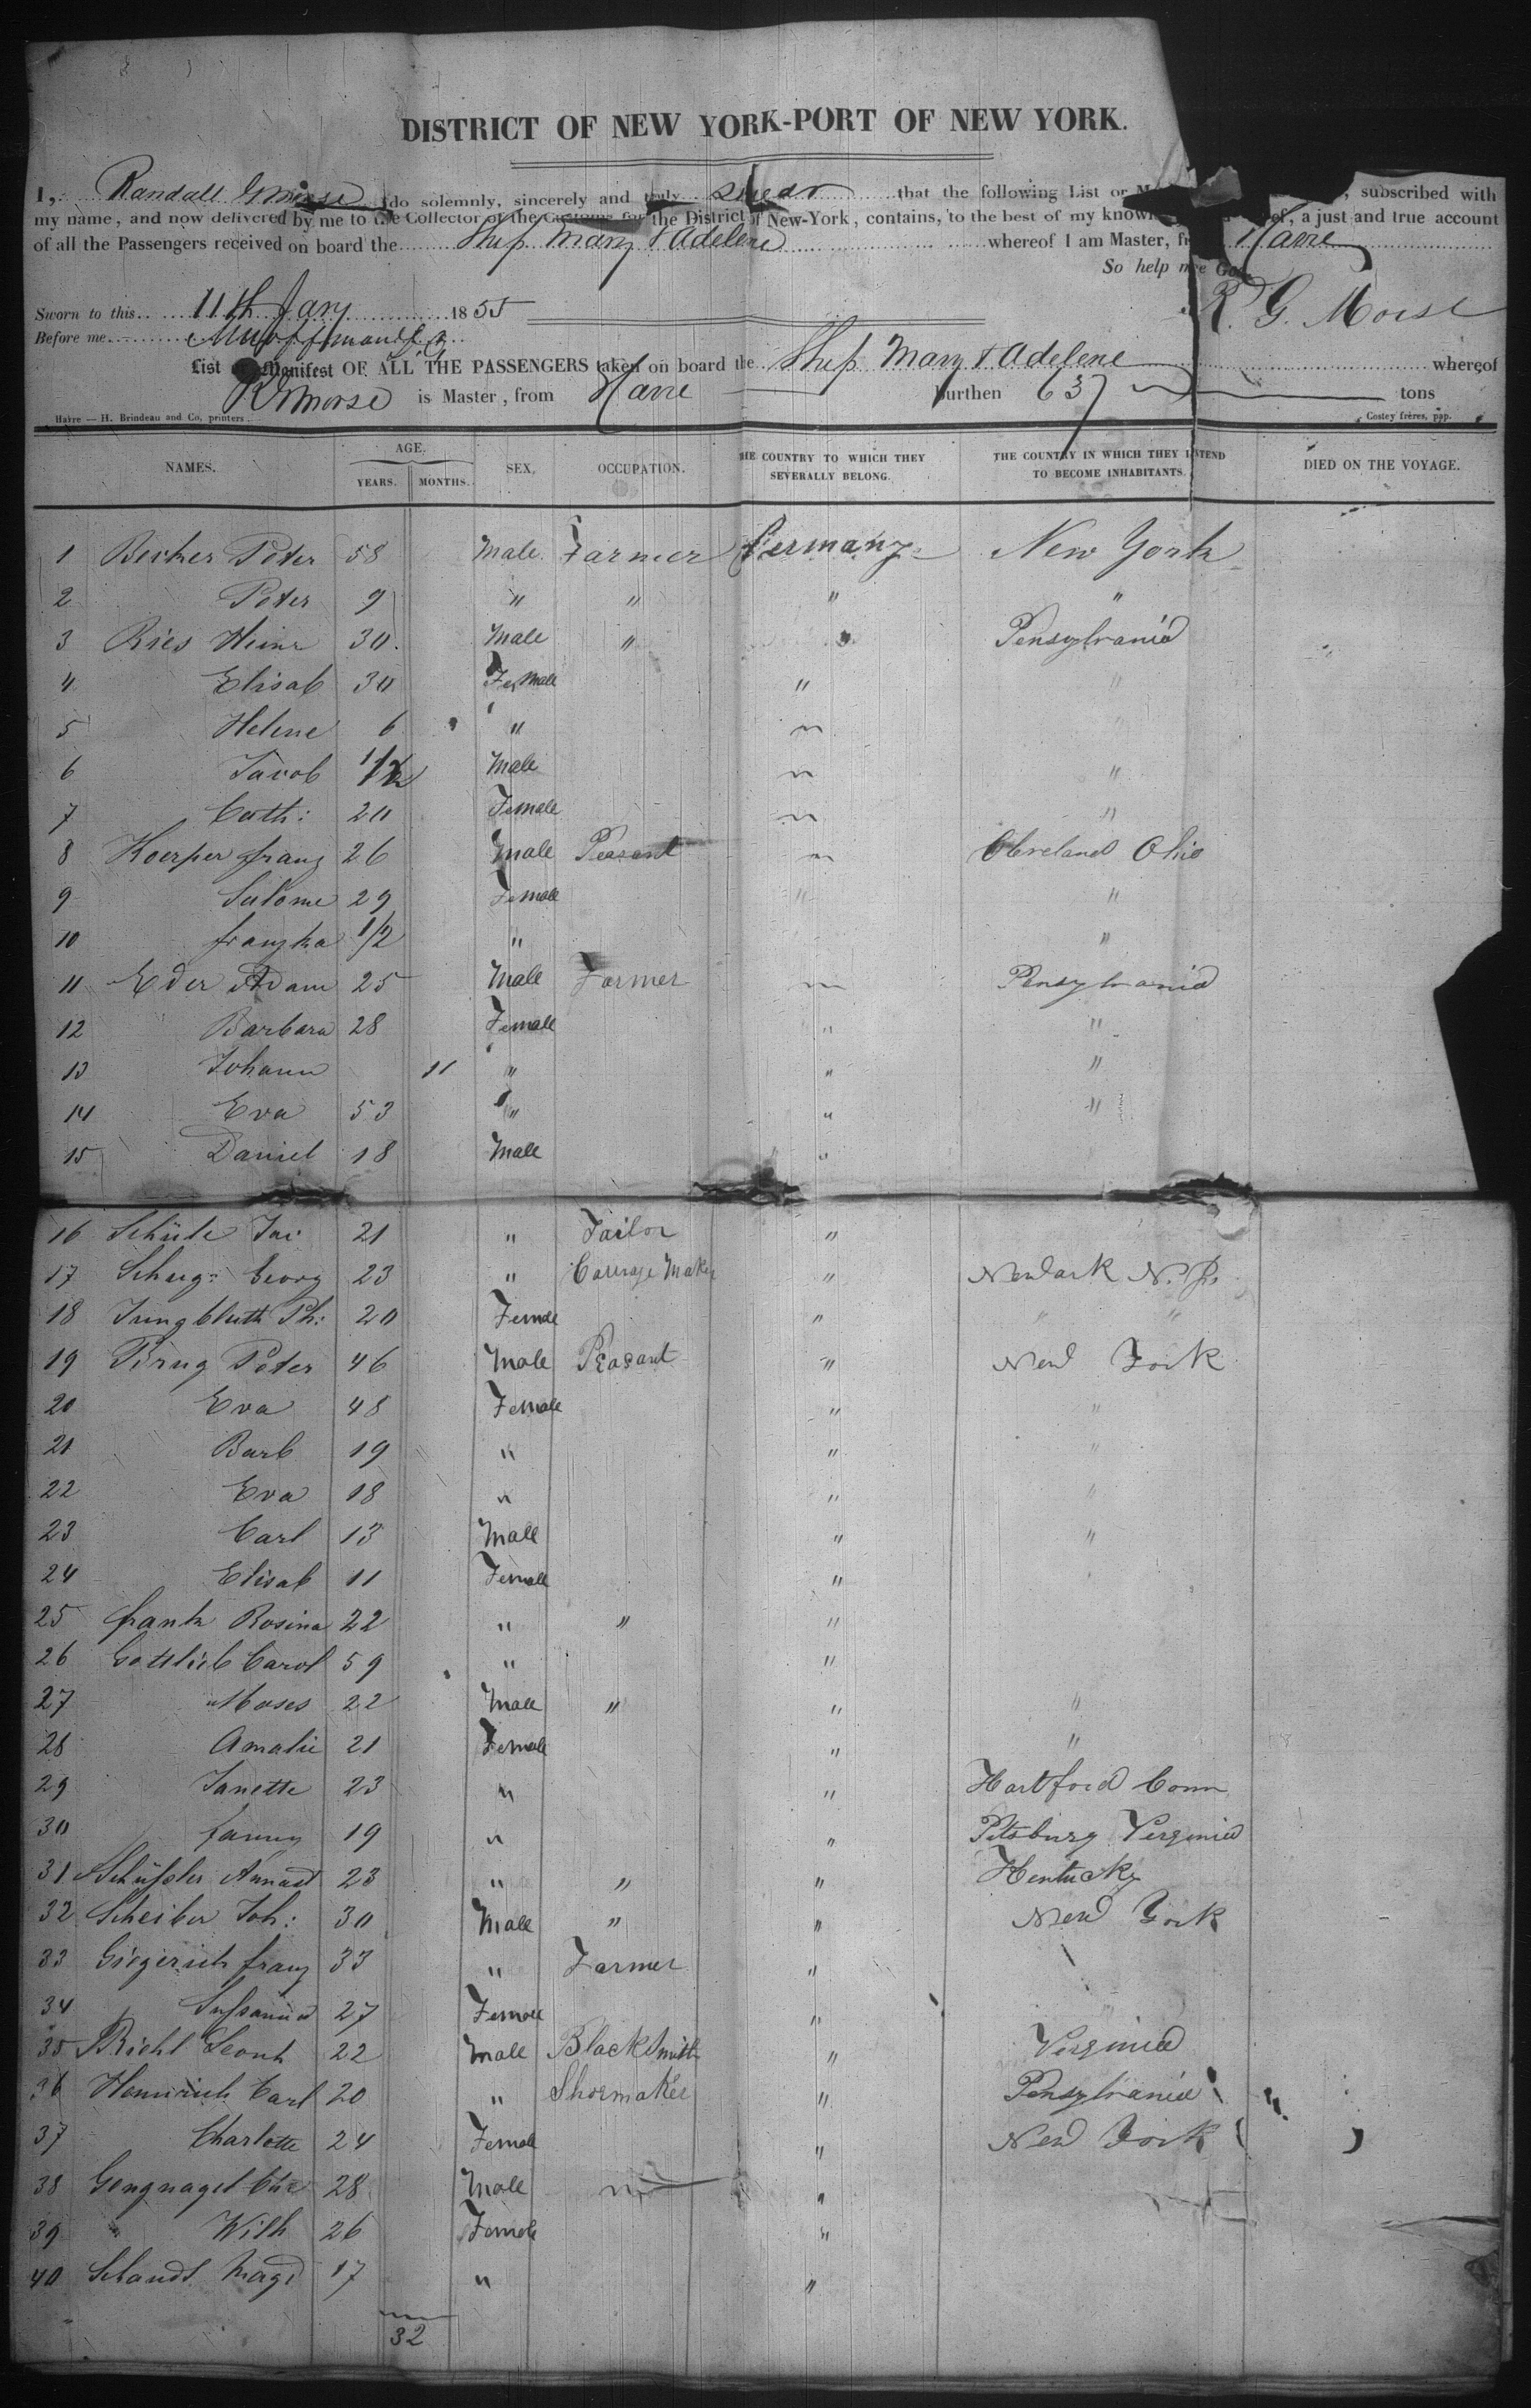 DISTRICT OF NEW YORK-PORT OF NEW YORK.
I, Randall G Morse do solemnly, sincerely and truly swear that the following List or subscribed with
my name, and now delivered by me to the Collector of the Customs for the District of New-York, contains, to the best of my a just and true account
of all the Passengers received on board the Ship Mary & Adelene whereof I am Master, from Havre
So help me God.
Sworn to this 11th Jany 1855 R. G. Morse
Before me
List or Manifest OF ALL THE PASSENGERS taken on board the Ship Mary & Adelene whereof
R G Morse is Master, from Havre burthen 637 tons
Havre — H. Brindeau and Co, printers. Costey frères, pap.
NAMES. AGE. YEARS. MONTHS. SEX. OCCUPATION. THE COUNTRY TO WHICH THEY SEVERALLY BELONG. THE COUNTRY IN WHICH THEY INTEND TO BECOME INHABITANTS. DIED ON THE VOYAGE.
1 Becker Peter 58 Male Farmer Germany New York
2 Peter 9 " " " "
3 Ries Heinr 30 Male " " Pensylvania
4 Elisab 30 Female " "
5 Helene 6 " "
6 Jacob 1/2 Male " "
7 Cath: 20 Female " "
8 Koerper franz 26 Male Peasant " Cleveland Ohio
9 Salome 29 Female " "
10 franzka 1/2 " "
11 Eder Adam 25 Male Farmer " Pensylvania
12 Barbara 28 Female " "
13 Johann 11 " " "
14 Eva 53 " " "
15 Daniel 18 Male "
16 Schiele Jac 21 " Tailor "
17 Schug Georg 23 " Carrage Maker " Newark N. J.
18 Jungbluth Ph: 20 Female " " "
19 Brug Peter 46 Male Peasant " New York
20 Eva 48 Female " "
21 Barb 19 " " "
22 Eva 18 " " "
23 Carl 13 Male " "
24 Elisab 11 Female "
25 frank Rosina 22 " " "
26 Gottlieb Carol 59 " "
27 Moses 22 Male " " "
28 Amalie 21 Female " "
29 Janette 23 " " Hartford Conn
30 fanny 19 " " Pitsburg Verginia
31 Schüssler Annast 23 " " " Kentucky
32 Scheiber Joh: 30 Male " " New York
33 Giegerich franz 33 " Farmer "
34 Sussanna 27 Female " "
35 Richl Leonh 22 Male BlackSmith " Verginia
36 Heinrich Carl 20 " Shoemaker " Pensylvania
37 Charlotte 24 Female " New York
38 Gengnagel Chr 28 Male " "
39 Wilh 26 Female "
40 Schandt Magd 17 " "
32